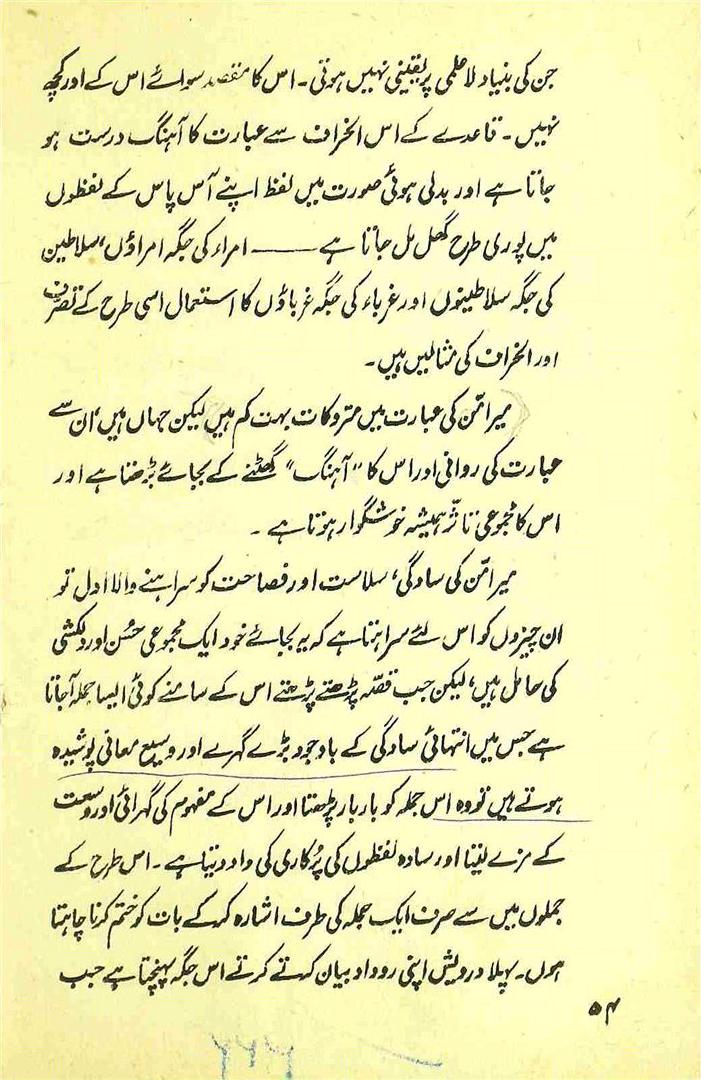 جن کی بنیاد لاعلمی پر یقینی نہیں ہوتی۔ اس کا مقصد سوائے اس کے اور کچھ
نہیں۔ قاعدے کے اس انحراف سے عبارت کا آہنگ درست ہو
جاتا ہے اور بدلی ہوئی صورت میں لفظ اپنے آس پاس کے لفظوں
میں پوری طرح گھل مل جاتا ہے —— امراء کی جگہ امراؤں، سلاطین
کی جگہ سلاطینوں اور غرباء کی جگہ غرباؤں کا استعمال اسی طرح کے تصرف
اور انحراف کی مثالیں ہیں۔
میرامّن کی عبارت میں متروکات بہت کم ہیں لیکن جہاں ہیں، ان سے
عبارت کی روانی اور اس کا "آہنگ" گھٹنے کے بجائے بڑھتا ہے اور
اس کا مجموعی تاثّر ہمیشہ خوشگوار ہوتا ہے۔
میرامّن کی سادگی، سلاست اور فصاحت کو سراہنے والا اول تو
ان چیزوں کو اس لئے سراہتا ہے کہ یہ بجائے خود ایک مجموعی حُسن اور دلکشی
کی حامل ہیں، لیکن جب قصّہ پڑھتے پڑھتے اس کے سامنے کوئی ایسا جملہ آجاتا
ہے جس میں انتہائی سادگی کے باوجود بڑے گہرے اور وسیع معانی پوشیدہ
ہوتے ہیں تو وہ اس جملہ کو بار بار پڑھتا اور اس کے مفہوم کی گہرائی اور وسعت
کے مزے لیتا اور سادہ لفظوں کی پُرکاری کی داد دیتا ہے۔ اس طرح کے
جملوں میں سے صرف ایک جملہ کی طرف اشارہ کرکے بات کو ختم کرنا چاہتا
ہوں۔ پہلا درویش اپنی روداد بیان کرتے کرتے اس جگہ پہنچتا ہے جب
۵۴